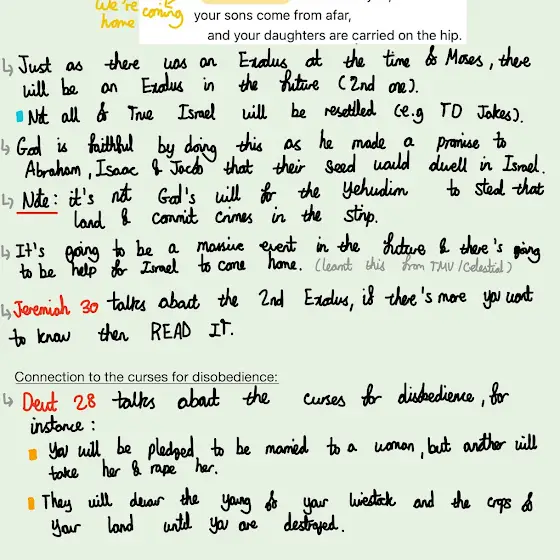 We're
home
coming
your sons come from afar,
and your daughters are carried on the hip.
↳ Just as there was an Exodus at the time of Moses, there
will be an Exodus in the future (2nd one).
Not all of True Israel will be resettled (e.g TD Jakes).
↳ God is faithful by doing this as he made a promise to
Abraham, Isaac & Jacob that their seed would dwell in Israel.
↳ Note: it's not God's will for the Yehudim to steal that
land & commit crimes in the strip.
↳ It's going to be a massive event in the future & there's going
to be help for Israel to come home. (learnt this from TMV/Celestial)
↳ Jeremiah 30 talks about the 2nd Exodus, if there's more you want
to know then READ IT.
Connection to the curses for disobedience:
↳ Deut 28 talks about the curses for disobedience, for
instance:
You will be pledged to be married to a woman, but another will
take her & rape her.
They will devour the young of your livestock and the crops of
your land until you are destroyed.